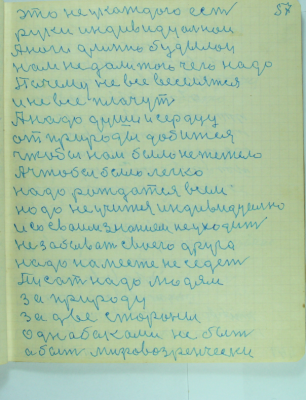 57
это не укаждого ест
руки индивидуалнои
Аноги длитно будьлои
нам недалитого чего надо
Почему не все веселятся
и не все плачут
А надо души и сердцу
от природы добится
чтобы нам было нетяжело
Ачтобы было легко
надо раждатся всем
надо не учится индивидуално
и со своим знанием неуходит
незабыват своего друга
надо на месте не седет
Писат надо людям
за природу
за две стороны
однабоками не быт
абыт мировозренчески